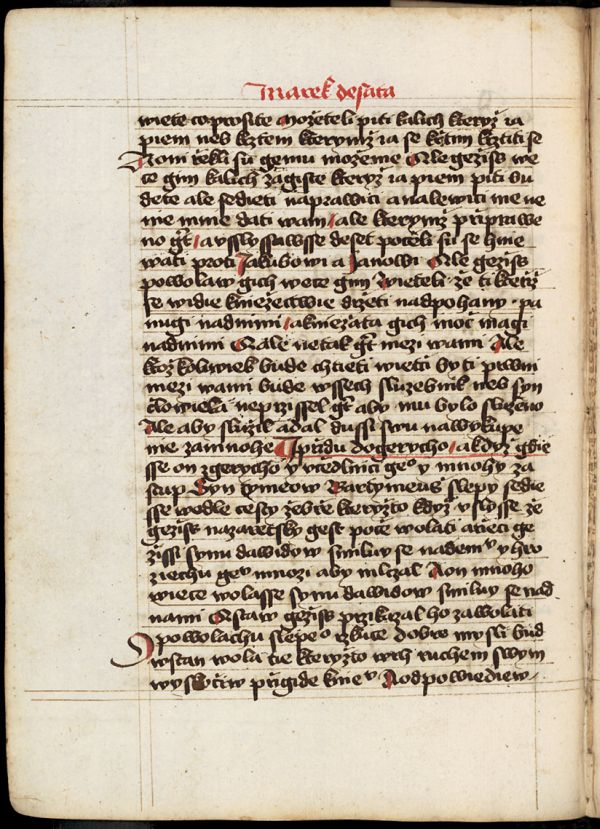 Marek desata
wiete coprosite Możeteli piti kalich kteryż ia
piem neb krztem kterymż ia se krztim krztiti se
Aoni řekli sú gemu możeme Ale geżiss we
ce gim kalich zagiste kteryż ia piem piti bu
dete ale sedieti naprawici analewici me ne
nie mme dati wam / ale kterymż připrawe
no gt / a vsslyssawsse deset počeli sú se hnie
wati proti Jakubowi a Janowi Ale geżiss
powolaw gich wece gim wieteli że ti ktėrż
se widie knieżecwie drżeti nadpohany pa
nugi nadnimi / akniezata gich moc magi
nadnimi Ale netak gt mezi wami Ale
ktoż koliwiek bude chtieti wietči byti prwni
mezi wami bude wssech slużebnik neb syn
člowieka neprzissel gt aby mu bylo slużeno
Ale aby slużil adal dussi swu nawykupe
nie zamnohe Ipřidu dogerycho / akdyż gdie
sse on zgerycho y včedlnici geo y mnohy za
stup Syn tymeow Bartymeus slepy sedie
sse wedle cesty żebrze kteryżto kdyż vslysse że
geżiss nazaretsky gest poče wolati ařeci ge
żissi synu dawidow smiluy se nademu y hro
ziechu geu mnozi aby mlczal Aon mnoho
wiece wolasse synu dawidow smiluy se nad
nami Astaw geżiss przikazal ho zawolati
Ipowolachu slepeo rzkuce dobre mysli bud
wstan wola tie kteryżto wrh ruchem swym
wyskočiw přigide kniemu Aodpowiediew